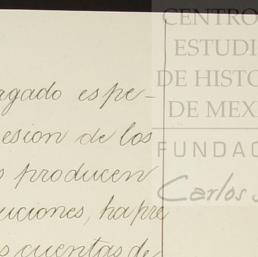 agado espe-
esion de los
s producen
uciones, ha pre
s cuentas de
CENTRO
ESTUDI
DE HISTO
DE MEX
FUNDAC
Carlos S